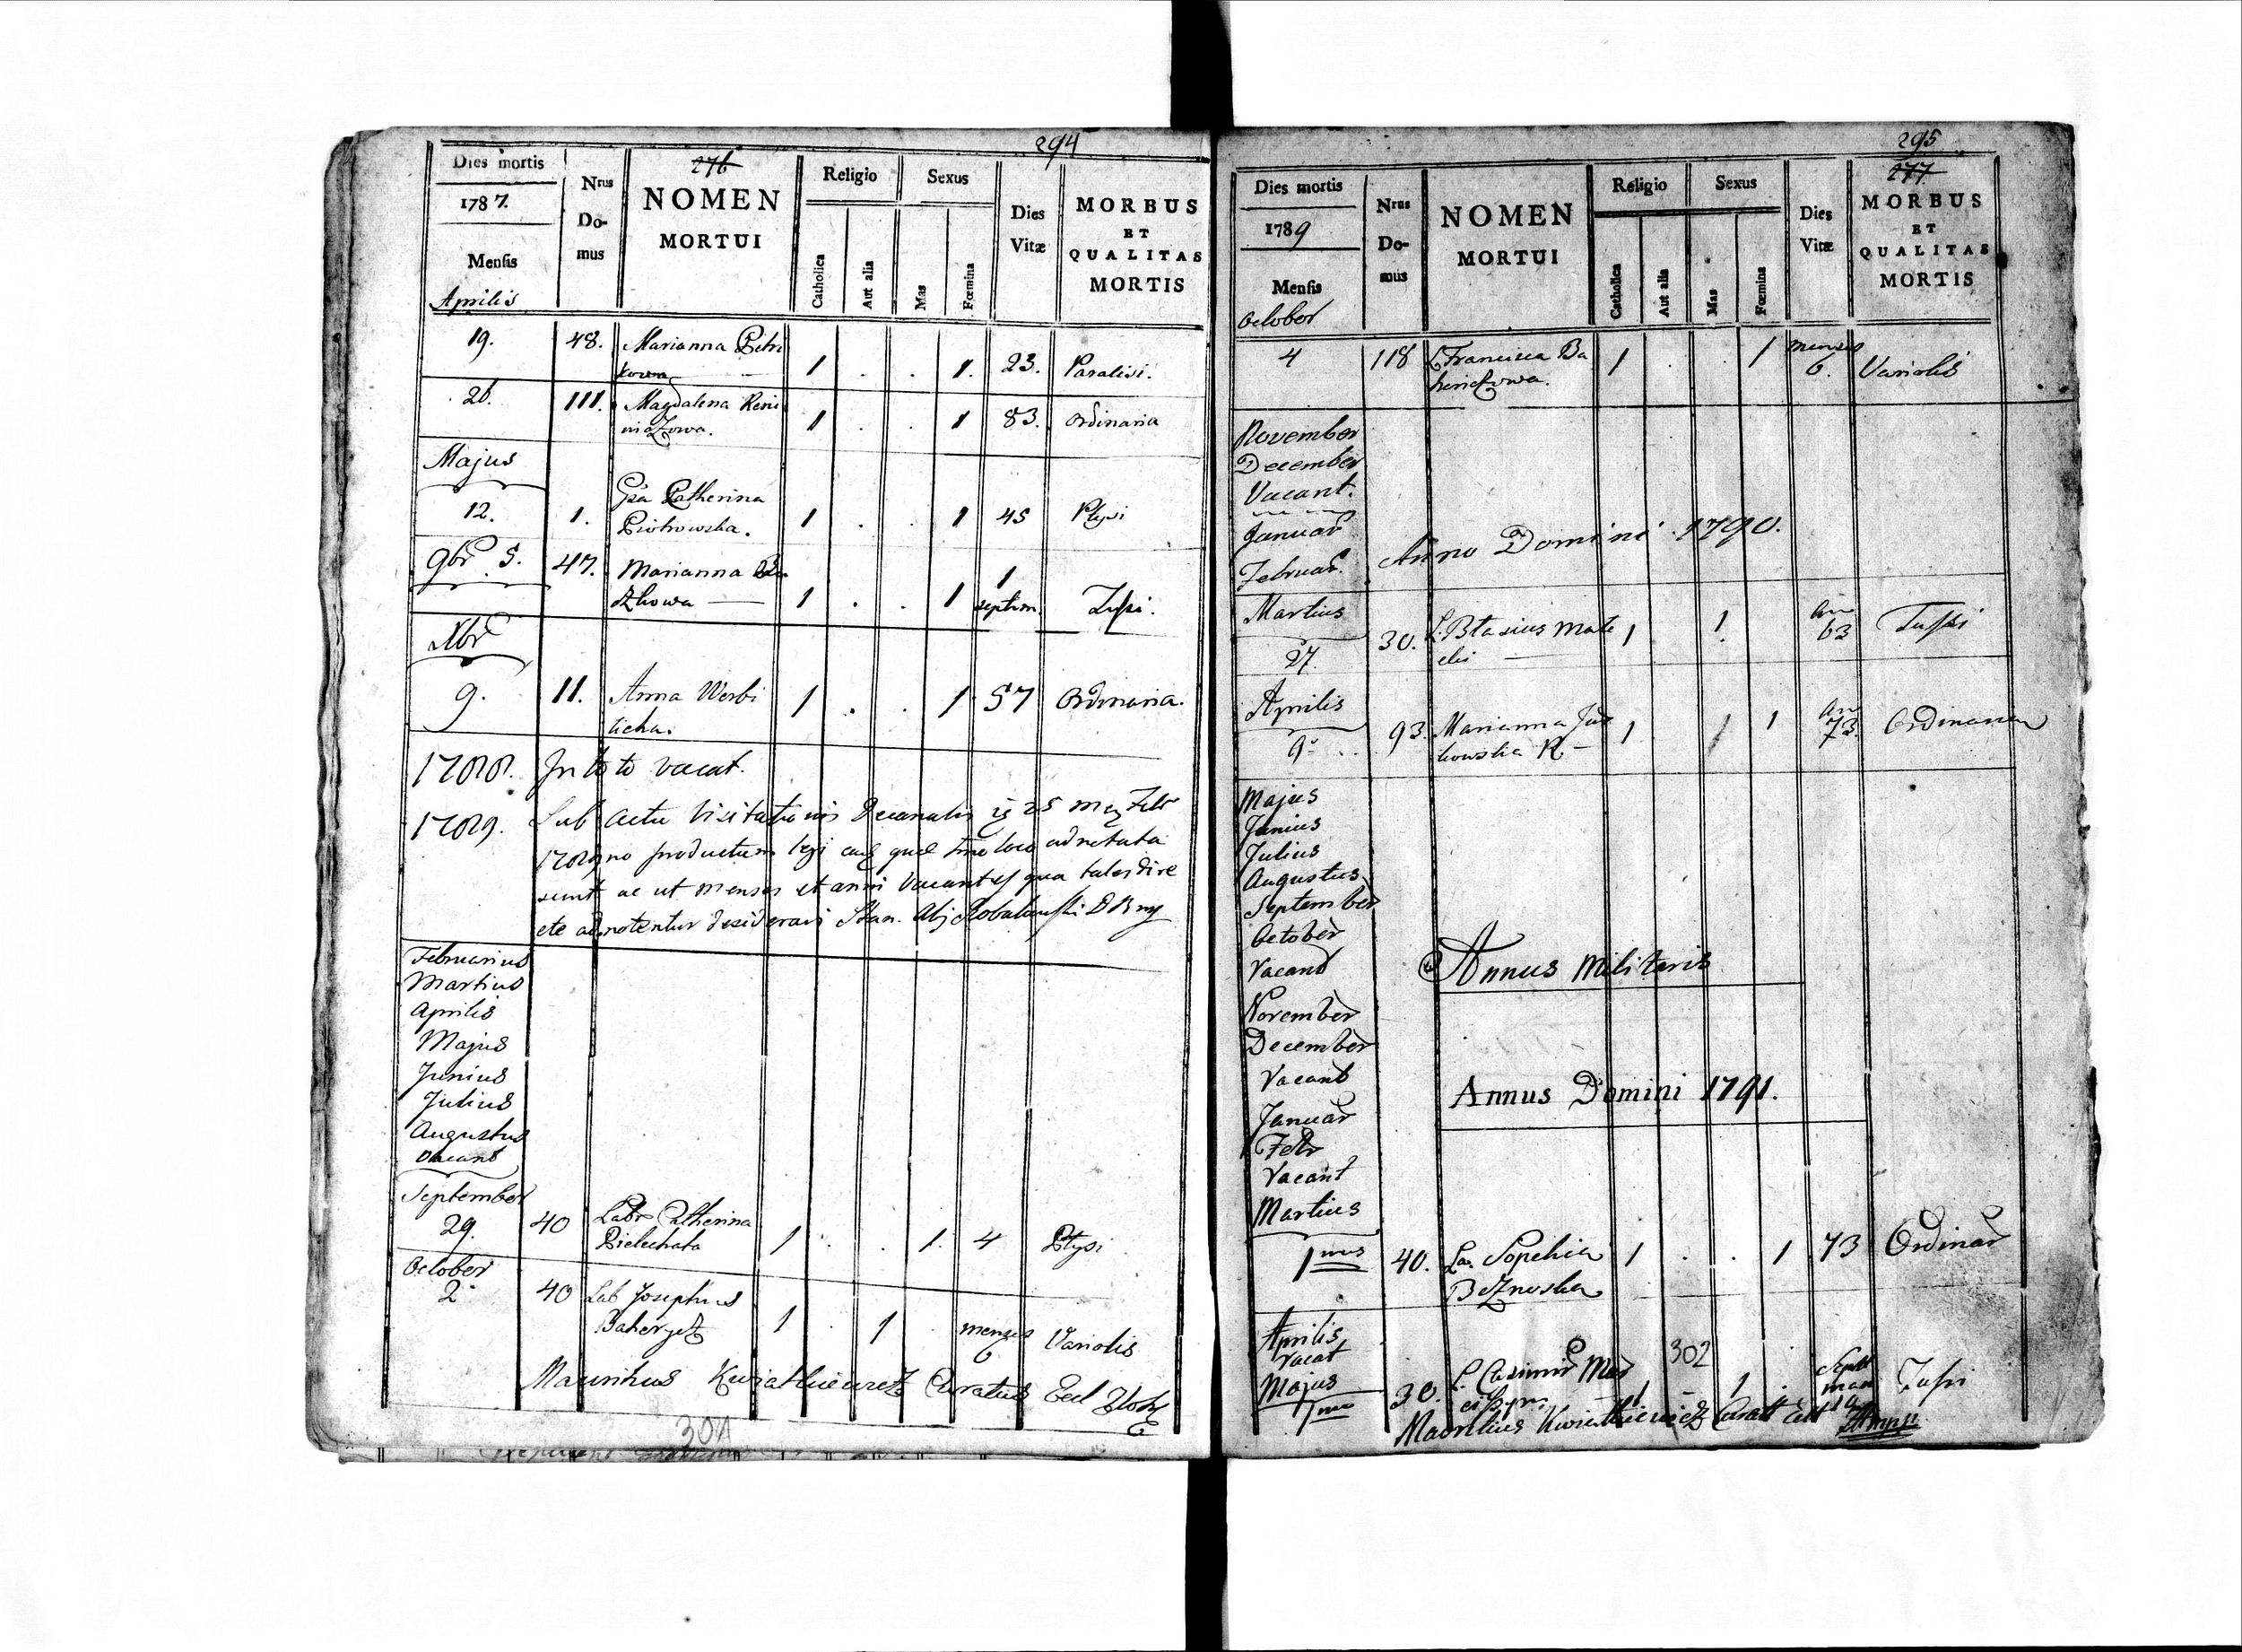 294
276
Dies mortis
1787.
Mensis
Aprilis
Nrus Do-mus
NOMEN
MORTUI
Religio
Catholica
Aut alia
Sexus
Mas
Fœmina
Dies Vitæ
MORBUS
ET
QUALITAS
MORTIS
19. 48. Marianna Petri 1 . . 1. 23. Paralisi.
kowa
26. 111. Magdalena Reni 1 . . 1 83. Ordinaria
niczowa.
Majus
Catherina
12. 1. Piotrowska. 1 . . 1 45 Ptysi
9br 5. 47. Marianna
1 . . 1 1 septim. Tussi.
Xbr
9. 11. Anna Werbi 1 . . 1 57 Ordinaria.
licha.
1788. In toto vacat.
1789. Sub actu Visitationis Decanalis 25 Febr
productum
sunt ac ut menses et anni vacantes qua tales dire
adnotentur desideravi
Februarius
Martius
Aprilis
Majus
Junius
Julius
Augustus
Vacant
September
29. 40 Labr Catherina
Pielechata 1 . . 1. 4 Ptysi
October
2 40 Lab Josephus
1 . 1 . menses 6 Variolis
Mauritius Kwiatkiewicz Curatus Eccl
301
295
277
Dies mortis
1789
Mensis
October
Nrus Do-mus
NOMEN
MORTUI
Religio
Catholica
Aut alia
Sexus
Mas
Fœmina
Dies Vitæ
MORBUS
ET
QUALITAS
MORTIS
4 118 L Francisca Ba 1 . . 1 menses 6. Variolis
November
December
Vacant.
Januar
Februar. Anno Domini 1790.
Martius
27. 30. L. Blasius Mate 1 1 An 63 Tussi
Aprilis
9 93. Marianna 1 1 An 73. Ordinaria
kowska R.
Majus
Junius
Julius
Augustus
September
October
Vacant
Annus Militaris
November
December
Vacant
Annus Domini 1791.
Januar
Febr
Vacant
Martius
1mus 40. La. Sophia 1 . . 1 73 Ordinar
Aprilis
vacat
302
Majus
1mo 30. L. Casimir 1 1 Tussi
Mauritius Kwiatkiewicz Curatt